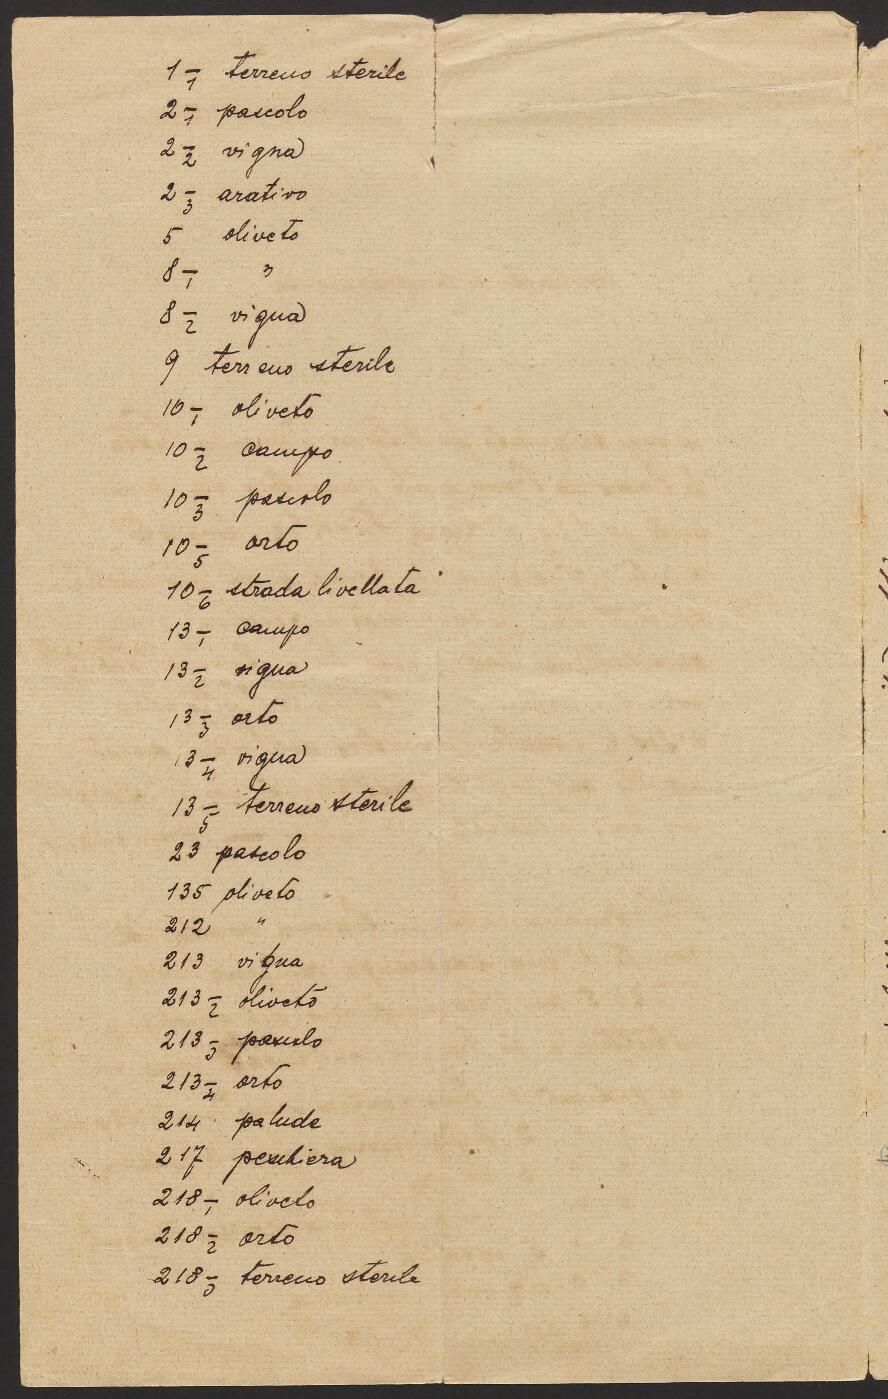 1-1 terreno sterile
2-1 pascolo
2-2 vigna
2-3 arativo
5 oliveto
8-1 "
8-2 vigna
9 terreno sterile
10-1 oliveto
10-2 campo
10-3 pascolo
10-5 orto
10-6 strada livellata
13-1 campo
13-2 vigna
13-3 orto
13-4 vigna
13-5 terreno sterile
23 pascolo
135 oliveto
212 "
213 vigna
213-2 oliveto
213-3 pascolo
213-4 orto
214 palude
217 peschiera
218-1 oliveto
218-2 orto
218-3 terreno sterile